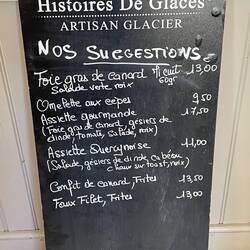 Histoires De Glaces
ARTISAN GLACIER
NOS SUGGESTIONS
Foie gras de canard mi cuit 13,00
Salade verte noix 60gr
Omelette aux cèpes 9,50
Assiette gourmande 17,50
(Foie gras de canard, gésiers de
dinde, tomate, salade, noix)
Assiette Quercynoise 11,00
(Salade, gésiers de dinde, cabécou
chaud sur toast, noix)
Confit de canard, Frites 13,50
Faux Filet, Frites 13,00